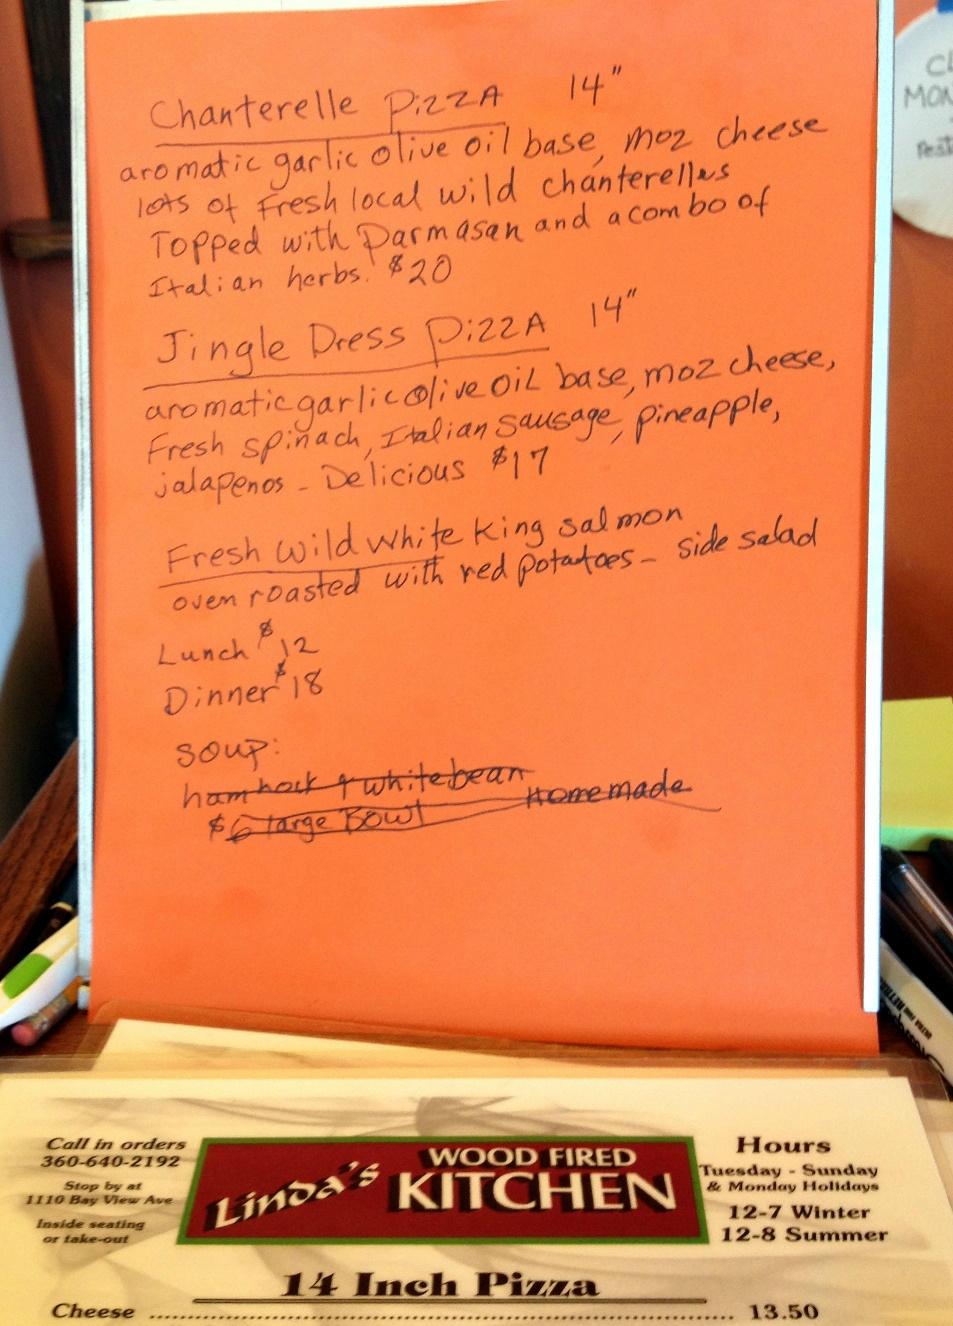 Chanterelle Pizza 14"
aromatic garlic olive oil base, moz cheese
lots of Fresh local wild chanterelles
Topped with Parmasan and a combo of
Italian herbs. $20
Jingle Dress Pizza 14"
aromatic garlic olive oil base, moz cheese,
Fresh spinach, Italian sausage, pineapple,
jalapenos - Delicious $17
Fresh Wild White King salmon
oven roasted with red potatoes - side salad
Lunch $12
Dinner $18
Soup:
ham hock & white bean
Homemade
$6 large Bowl
CL
MON
Call in orders
360-640-2192
Stop by at
1110 Bay View Ave
Inside seating
or take-out
Linda's WOOD FIRED
KITCHEN
Hours
Tuesday - Sunday
& Monday Holidays
12-7 Winter
12-8 Summer
14 Inch Pizza
Cheese ........ 13.50